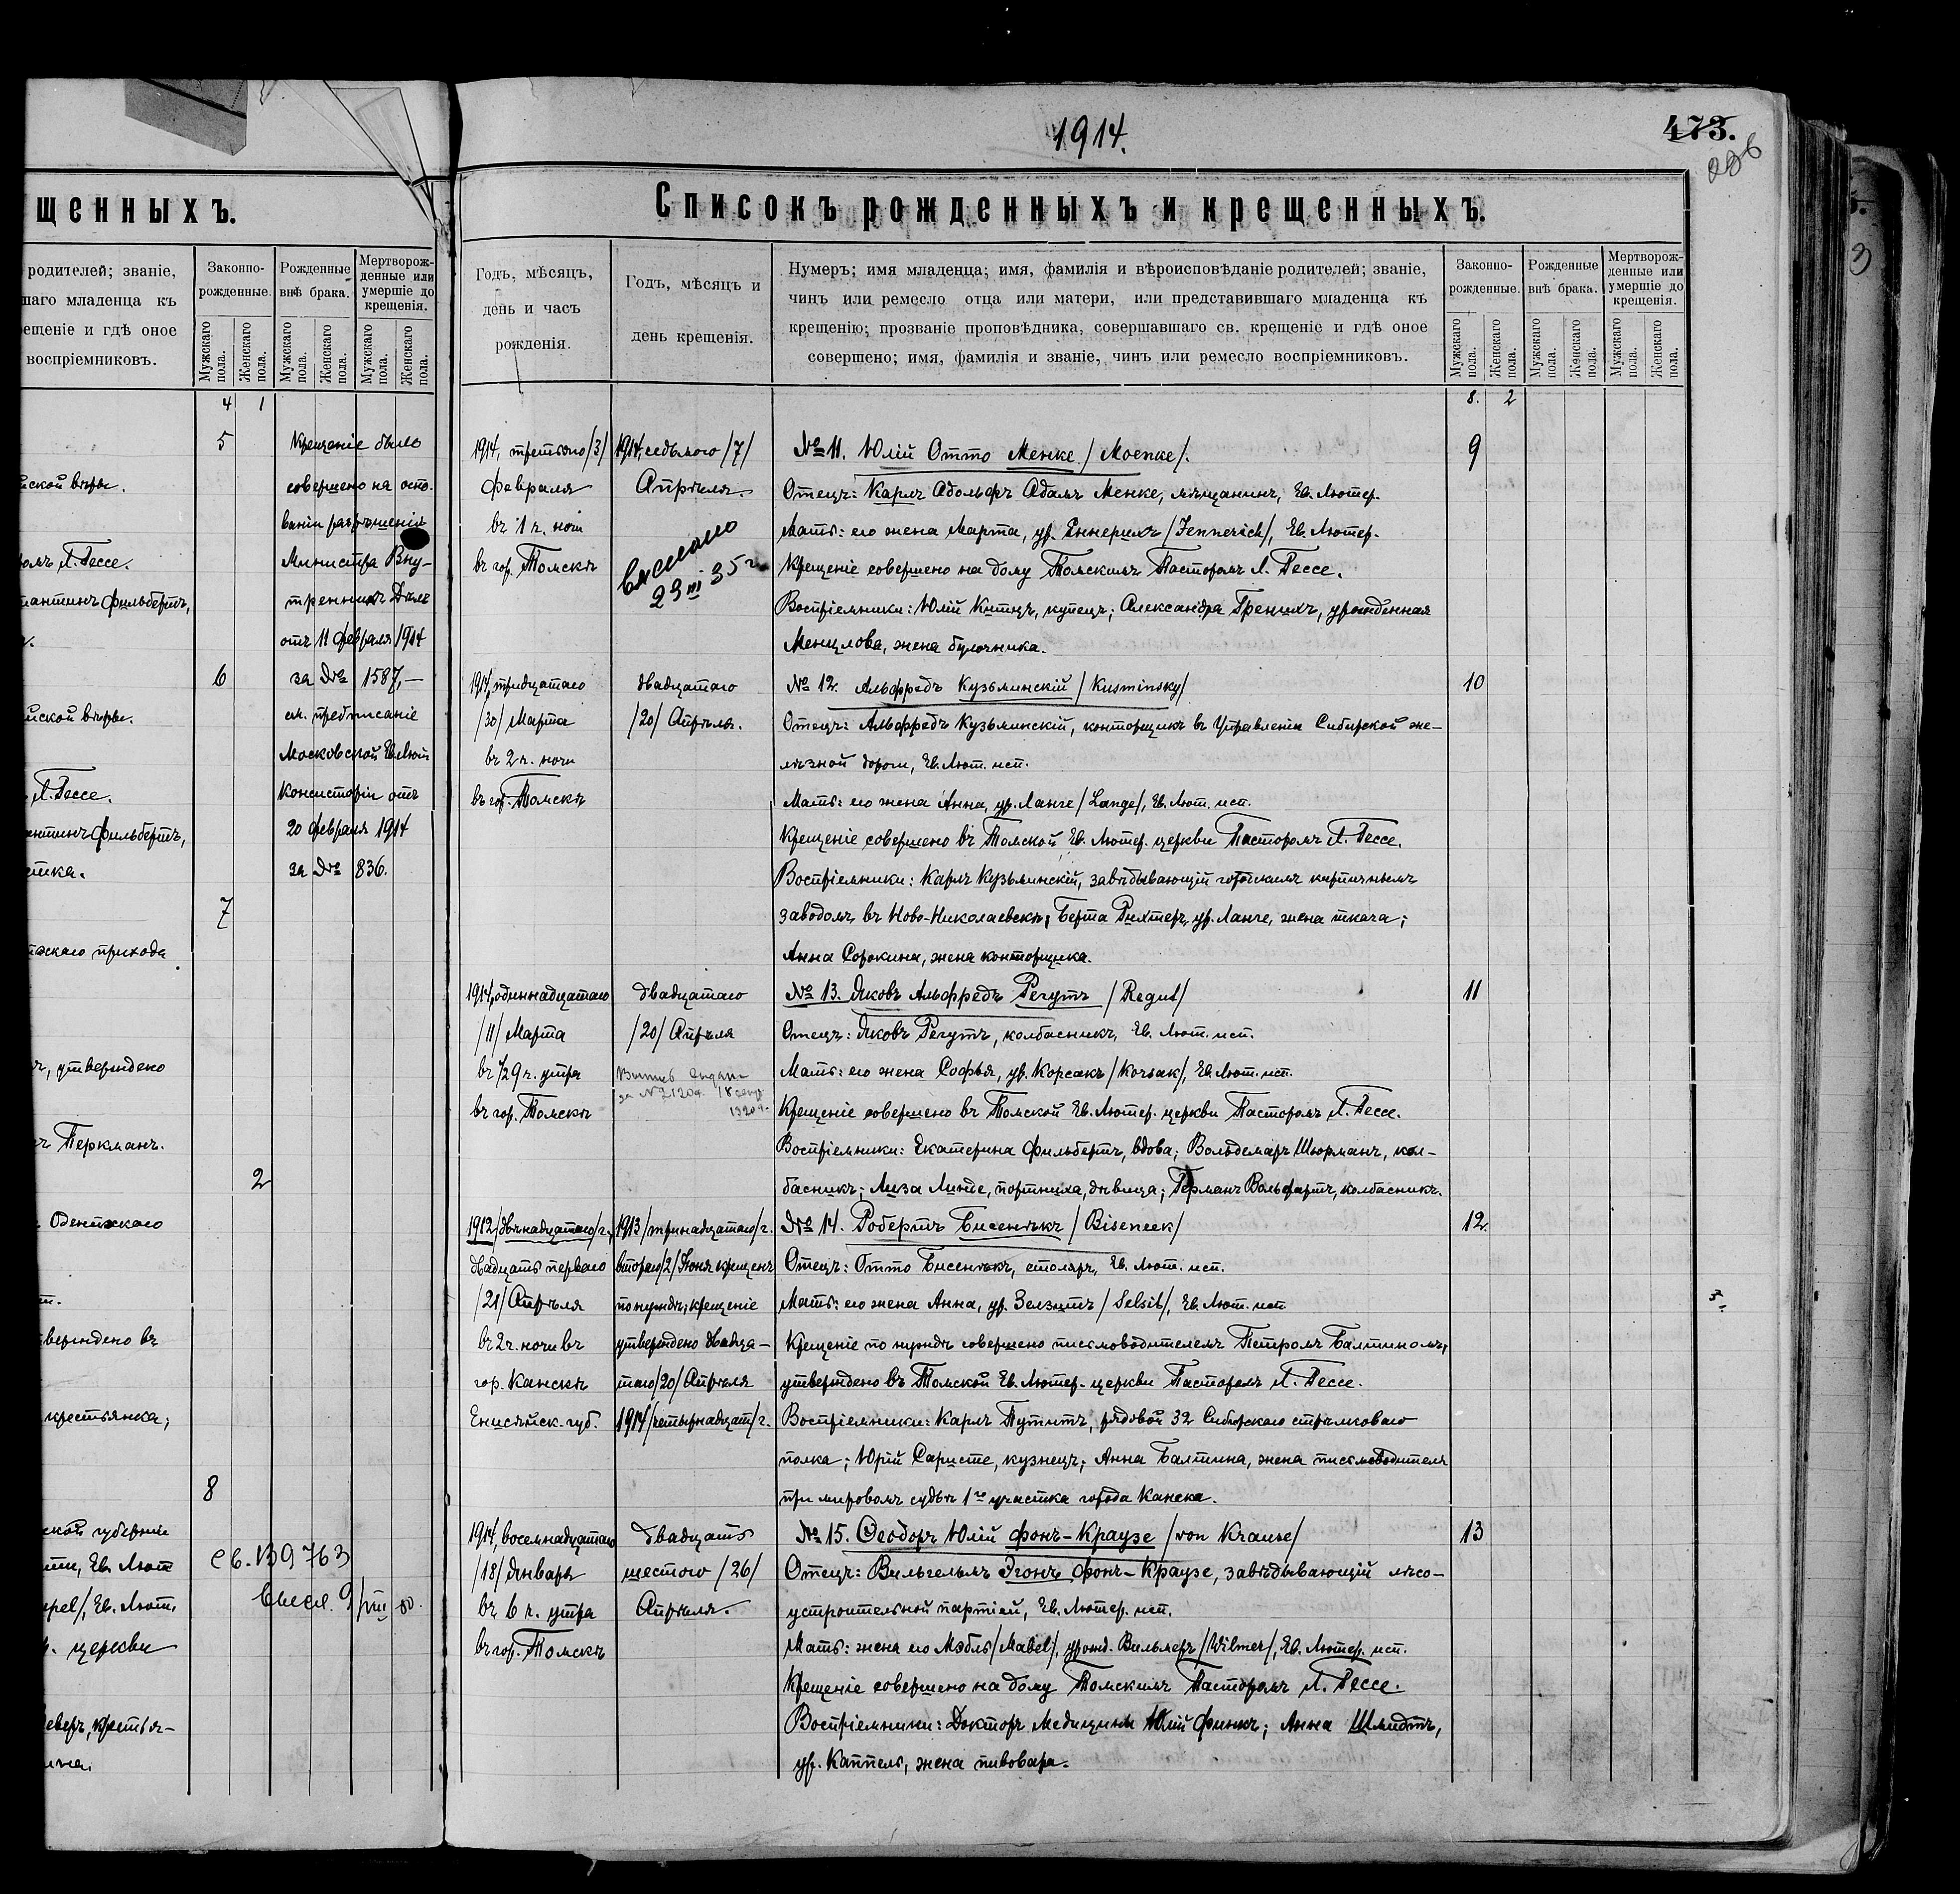 1914.
473.
щенныхъ.
родителей; званіе,
шаго младенца къ
ещеніе и гдѣ оное
воспріемниковъ.
Законно-
рожденные.
Рожденные
внѣ брака.
Мертворож-
денные или
умершіе до
крещенія.
Мужскаго пола.
Женскаго пола.
Мужскаго пола.
Женскаго пола.
Мужскаго пола.
Женскаго пола.
4 1
5 Крещеніе было
йской вѣры. совершено на осно-
ваніи разрѣшенія
Л. Гессе. Министра Вну-
Фильбертъ, треннихъ Дѣлъ
отъ 11 февраля 1914
6 за № 1587,—
йской вѣры. см. предписаніе
Московской Ев. Лют
Л. Гессе. Консисторіи отъ
Фильбертъ, 20 февраля 1914
за № 836.
7
прихода
утверждено
Перкманъ.
2
Одентскаго
утверждено въ
крестьянка;
8
ской губерніи
Ев. Лют св. 139763
pel/, Ев. Лют. высл. 9/VIII 80.
церкви
крестья-
Списокъ рожденныхъ и крещенныхъ.
Годъ, мѣсяцъ,
день и часъ
рожденія.
Годъ, мѣсяцъ и
день крещенія.
Нумеръ; имя младенца; имя, фамилія и вѣроисповѣданіе родителей; званіе,
чинъ или ремесло отца или матери, или представившаго младенца къ
крещенію; прозваніе проповѣдника, совершавшаго св. крещеніе и гдѣ оное
совершено; имя, фамилія и званіе, чинъ или ремесло воспріемниковъ.
Законно-
рожденные.
Рожденные
внѣ брака.
Мертворож-
денные или
умершіе до
крещенія.
Мужскаго пола.
Женскаго пола.
Мужскаго пола.
Женскаго пола.
Мужскаго пола.
Женскаго пола.
8. 2
1914, третьяго /3/ 1914, седьмого /7/ № 11. Юлій Отто Менке /Moenke/. 9
Февраля Апрѣля. Отецъ: Карлъ Адольфъ Адамъ Менке, мѣщанинъ, Ев. Лютер.
въ 1 ч. ночи Мать: его жена Марта, ур. Еннерихъ /Jennerich/, Ев. Лютер.
въ гор. Томскѣ выслано 23 III 35 г Крещеніе совершено на дому Томскимъ Пасторомъ Л. Гессе.
Воспріемники: Юлій Китцъ, купецъ; Александра Гренихъ, урожденная
Менцлова, жена булочника.
1914, тридцатаго двадцатаго № 12. Альфредъ Кузьминскій /Kusminsky/ 10
/30/ Марта /20/ Апрѣля. Отецъ: Альфредъ Кузьминскій, конторщикъ въ Управленіи Сибирской же-
въ 2 ч. ночи лѣзной дороги, Ев. Лют. исп.
въ гор. Томскѣ Мать: его жена Анна, ур. Ланге /Lange/, Ев. Лют. исп.
Крещеніе совершено въ Томской Ев. Лютер. церкви Пасторомъ Л. Гессе.
Воспріемники: Карлъ Кузьминскій, завѣдывающій городскимъ кирпичнымъ
заводомъ въ Ново-Николаевскѣ; Берта Рихтеръ, ур. Ланге, жена ткача;
Анна Сорокина, жена конторщика.
1914, одиннадцатаго двадцатаго № 13. Яковъ Альфредъ Регутъ /Regut/ 11
/11/ Марта /20/ Апрѣля Отецъ: Яковъ Регутъ, колбасникъ, Ев. Лют. исп.
въ 1/2 9 ч. утра Мать: его жена Софья, ур. Корсакъ /Korsak/, Ев. Лют. исп.
въ гор. Томскѣ Крещеніе совершено въ Томской Ев. Лютер. церкви Пасторомъ Л. Гессе.
Воспріемники: Екатерина Фильбертъ, вдова; Вольдемаръ Шюрманъ, кол-
басникъ; Лиза Линде, портниха, дѣвица; Германъ Вольфартъ, колбасникъ.
1912 /двѣнадцатаго/ г., 1913 /тринадцатаго/ г. № 14. Робертъ Бисенѣкъ /Biseneek/ 12.
двадцать перваго второго /2/ Іюня крещенъ Отецъ: Отто Бисенѣкъ, столяръ, Ев. Лют. исп.
/21/ Апрѣля по нуждѣ; крещеніе Мать: его жена Анна, ур. Зелзитъ /Selsit/, Ев. Лют. исп
въ 2 ч. ночи въ утверждено двадца- Крещеніе по нуждѣ совершено письмоводителемъ Петромъ Балтиномъ,
гор. Канскѣ таго /20/ Апрѣля утверждено въ Томской Ев. Лютер. церкви Пасторомъ Л. Гессе.
Енисейск. губ. 1914 /четырнадцат/ г. Воспріемники: Карлъ Путнтъ, рядовой 32 Сибирскаго стрѣлковаго
полка; Юрій Саристе, кузнецъ; Анна Балтина, жена письмоводителя
при мировомъ судьѣ 1го участка города Канска.
1914, восемнадцатаго двадцать № 15. Ѳеодоръ Юлій фонъ-Краузе /von Krause/ 13
/18/ Января шестого /26/ Отецъ: Вильгельмъ Эгонъ фонъ-Краузе, завѣдывающій лѣсо-
въ 6 ч. утра Апрѣля. устроительной партіей, Ев. Лютер. исп.
въ гор. Томскѣ Мать: жена его Мэбль /Mabel/, урожд. Вильмеръ /Wilmer/, Ев. Лютер. исп.
Крещеніе совершено на дому Томскимъ Пасторомъ Л. Гессе.
Воспріемники: Докторъ Медицины Юлій Финкъ; Анна Шмидтъ,
ур. Каппель, жена пивовара.